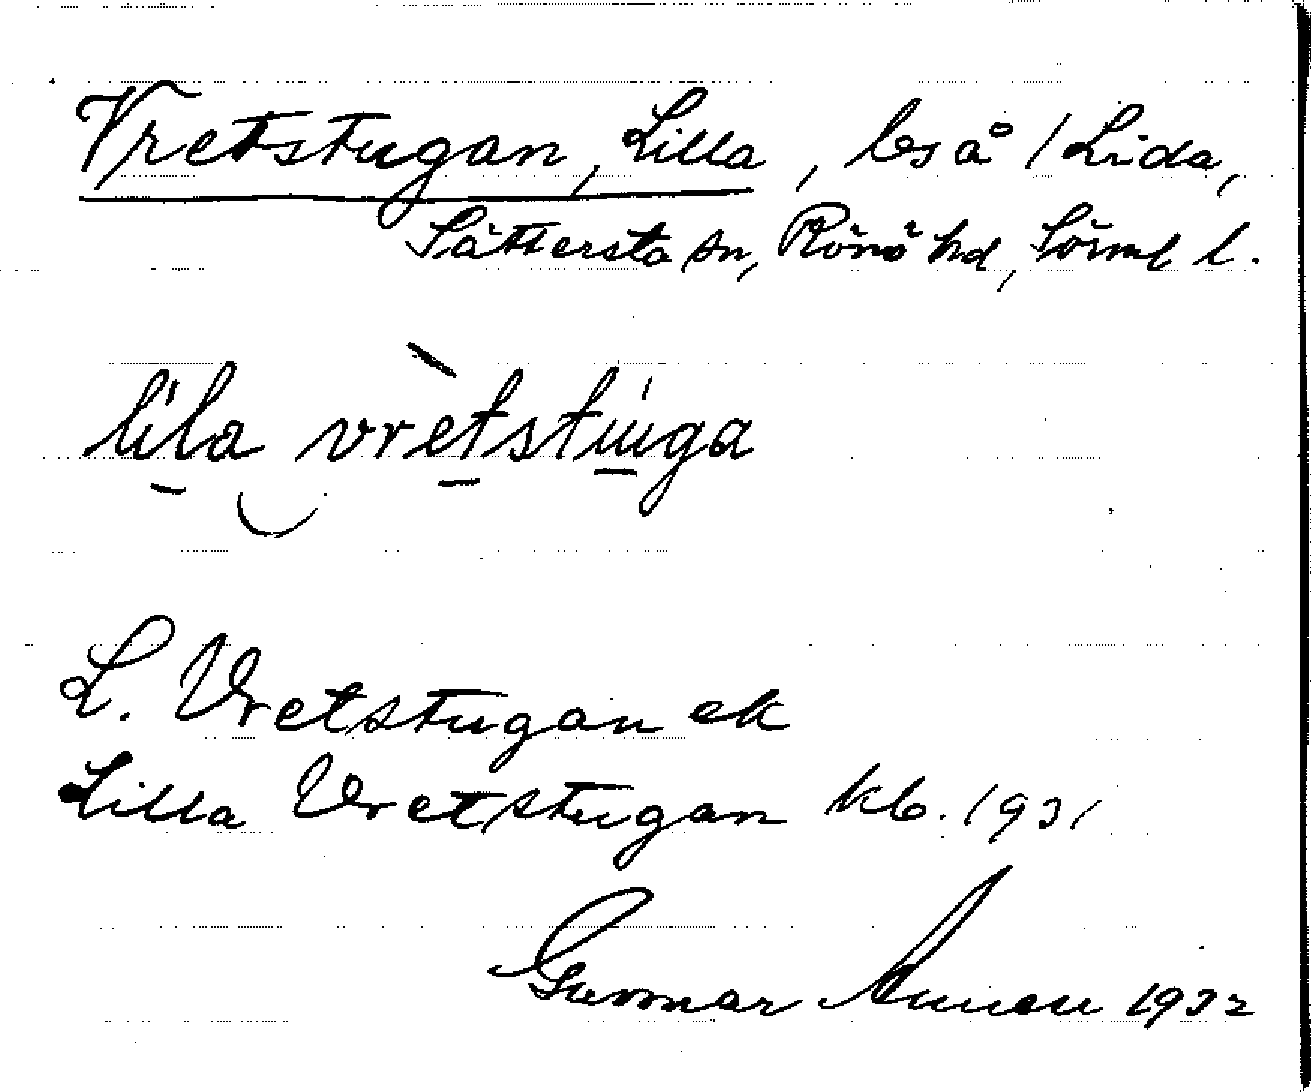 Vretstugan, Lilla, bs å 1 Lida,
Sättersta sn, Rönö hd, Sörml l.
lila vretstuga
L. Vretstugan ek
Lilla Vretstugan kb. 1931
Gunnar 1932